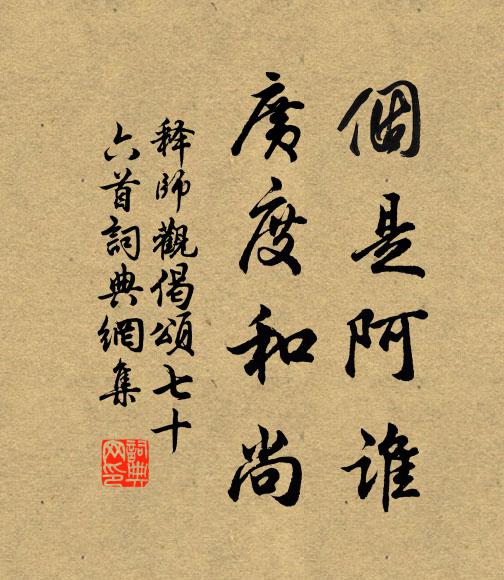 個是阿誰
廣度和尚
释師觀偈頌七十
六首詞典網集
詞典网印